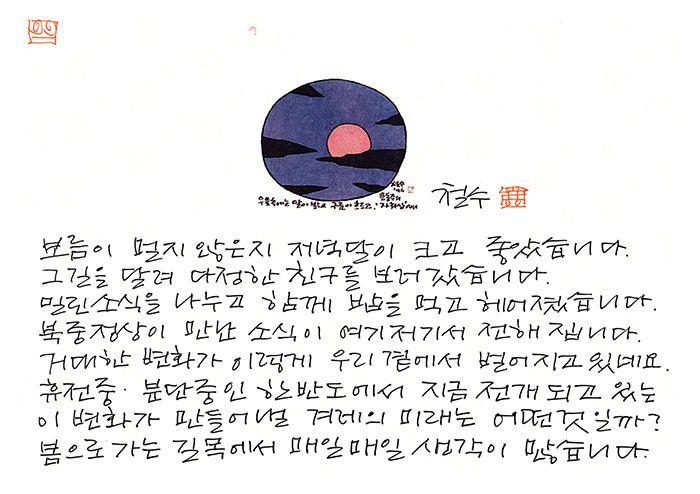 우물속에는 달이 밝고 구름이 흐르고, 윤동주의 '자화상'에서
철수
보름이 멀지 않은지 저녁달이 크고 좋았습니다.
그길을 달려 다정한 친구를 보러갔습니다.
밀린소식을 나누고 함께 밥을 먹고 헤어졌습니다.
북중정상이 만난 소식이 여기저기서 전해집니다.
거대한 변화가 이렇게 우리 곁에서 벌어지고 있네요.
휴전중·분단중인 한반도에서 지금 전개되고 있는
이 변화가 만들어낼 겨레의 미래는 어떤것일까?
봄으로 가는 길목에서 매일매일 생각이 많습니다.